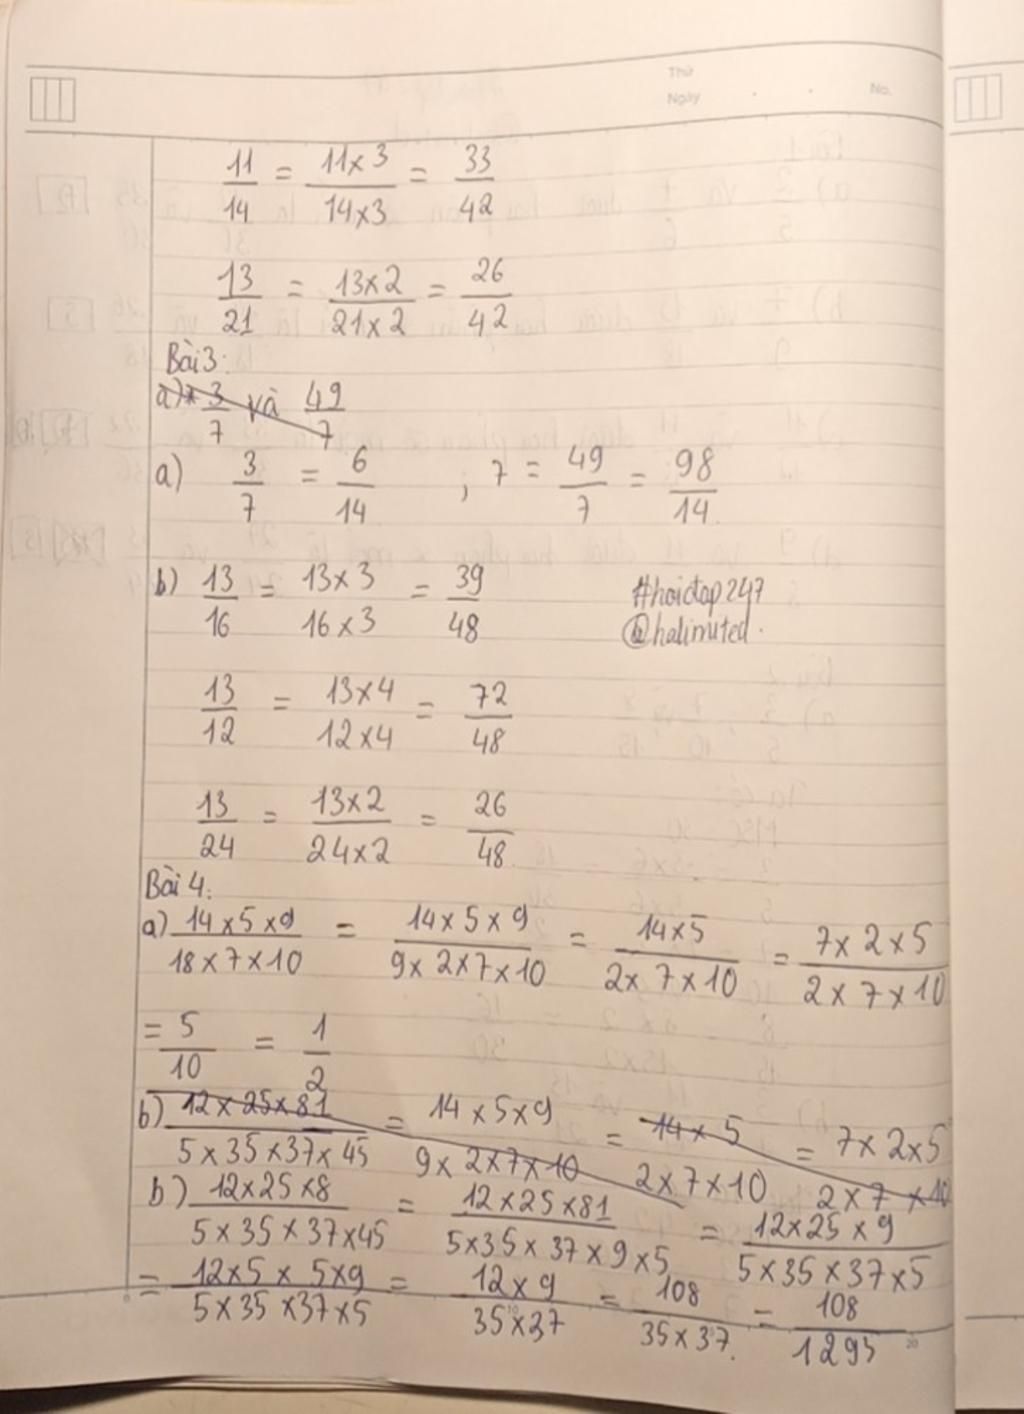 Thứ
Ngày
No.
11/14 = 11×3/14×3 = 33/42
13/21 = 13×2/21×2 = 26/42
Bài 3:
a) 3/7 và 49/7
a) 3/7 = 6/14 ; 7 = 49/7 = 98/14
b) 13/16 = 13×3/16×3 = 39/48
#hoidap247
@halimited.
13/12 = 13×4/12×4 = 72/48
13/24 = 13×2/24×2 = 26/48
Bài 4:
a) 14×5×9/18×7×10 = 14×5×9/9×2×7×10 = 14×5/2×7×10 = 7×2×5/2×7×10
= 5/10 = 1/2
b) 12×25×81/5×35×37×45 = 14×5×9/9×2×7×10 = 14×5/2×7×10 = 7×2×5/2×7×10
b) 12×25×8/5×35×37×45 = 12×25×81/5×35×37×9×5 = 12×25×9/5×35×37×5
= 12×5×5×9/5×35×37×5 = 12×9/35×37 = 108/35×37. = 108/1295